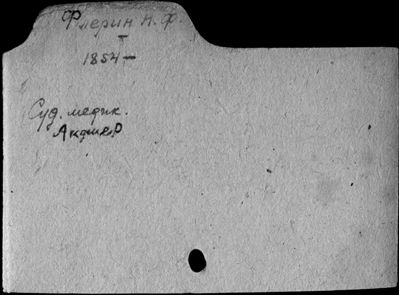 Флерин Н. Ф.
I
1854 —
Суд. медик.
Акушер